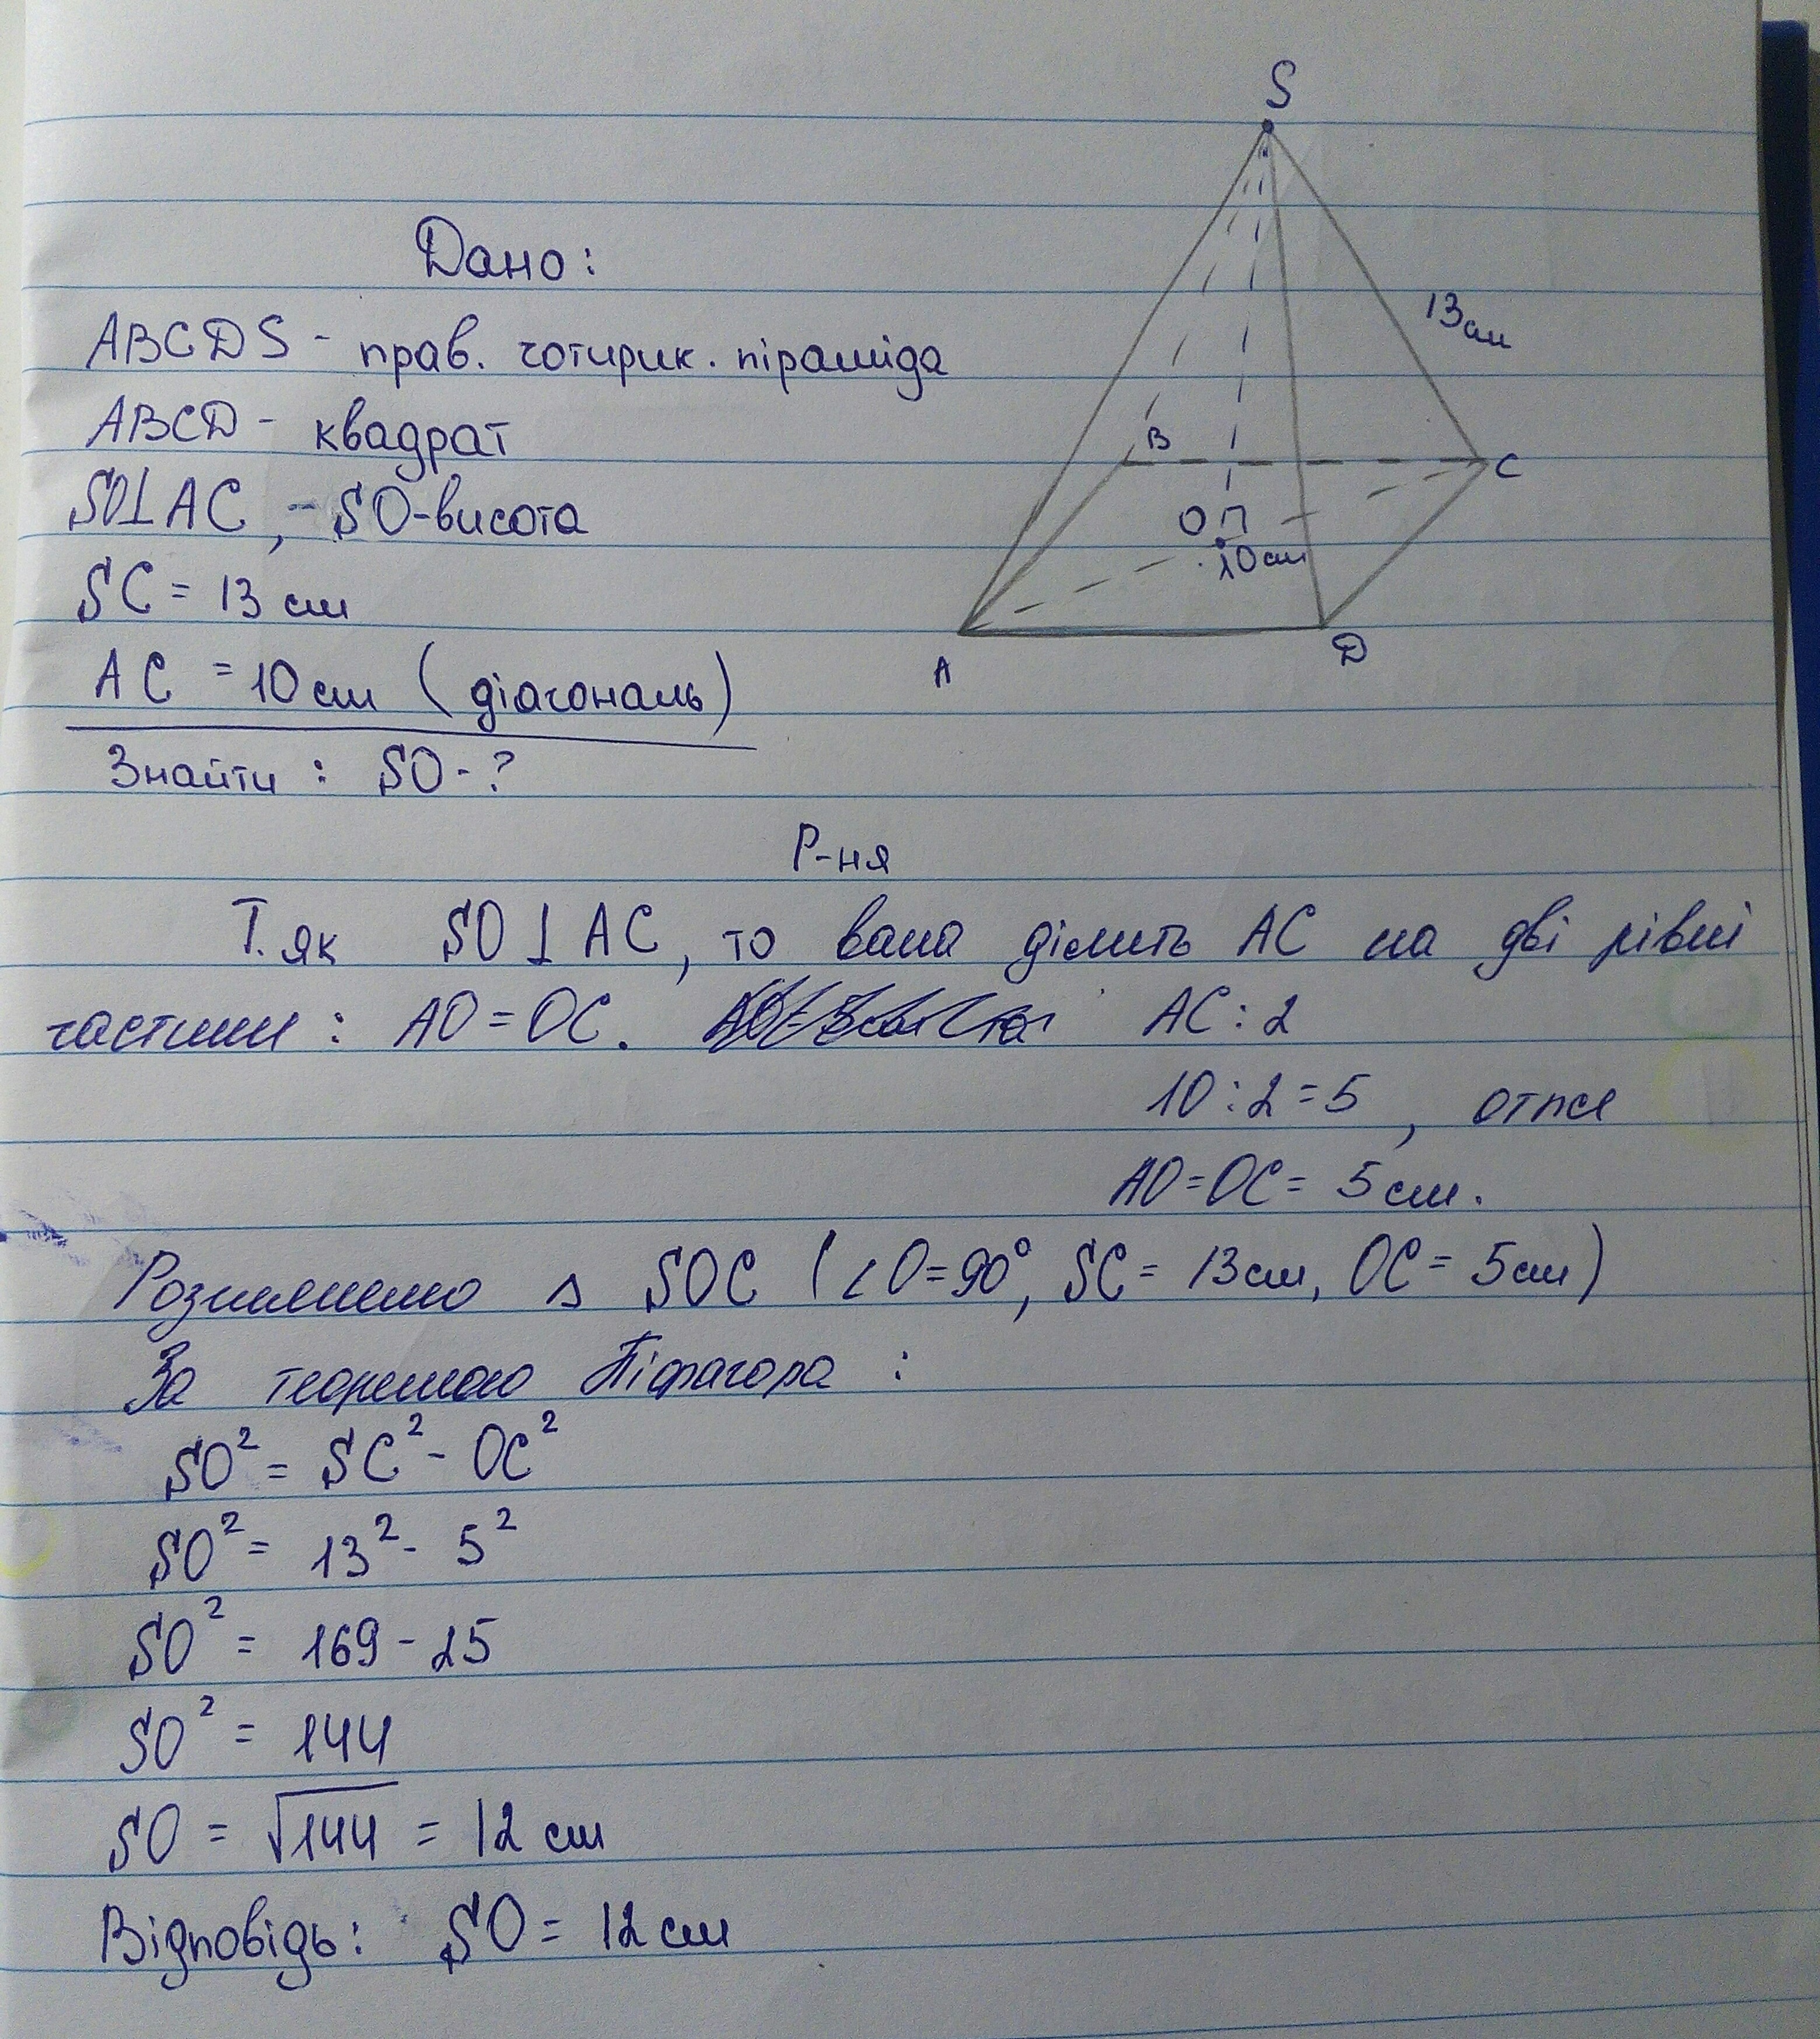 S
Дано:
ABCDS - прав. чотирик. піраміда
13 см
ABCD - квадрат
B
C
SO⊥AC, - SO-висота
O
10 см
SC = 13 см
A
D
AC = 10 см (діагональ)
Знайти : SO - ?
Р-ня
Т.як SO ⊥ AC, то вона ділить AC на дві рівні
частини : AO = OC. AC : 2
10 : 2 = 5 , отже
AO = OC = 5 см.
Розглянемо Δ SOC (∠O = 90°, SC = 13 см, OC = 5 см)
За теоремою Піфагора :
SO² = SC² - OC²
SO² = 13² - 5²
SO² = 169 - 25
SO² = 144
SO = √144 = 12 см
Відповідь: SO = 12 см